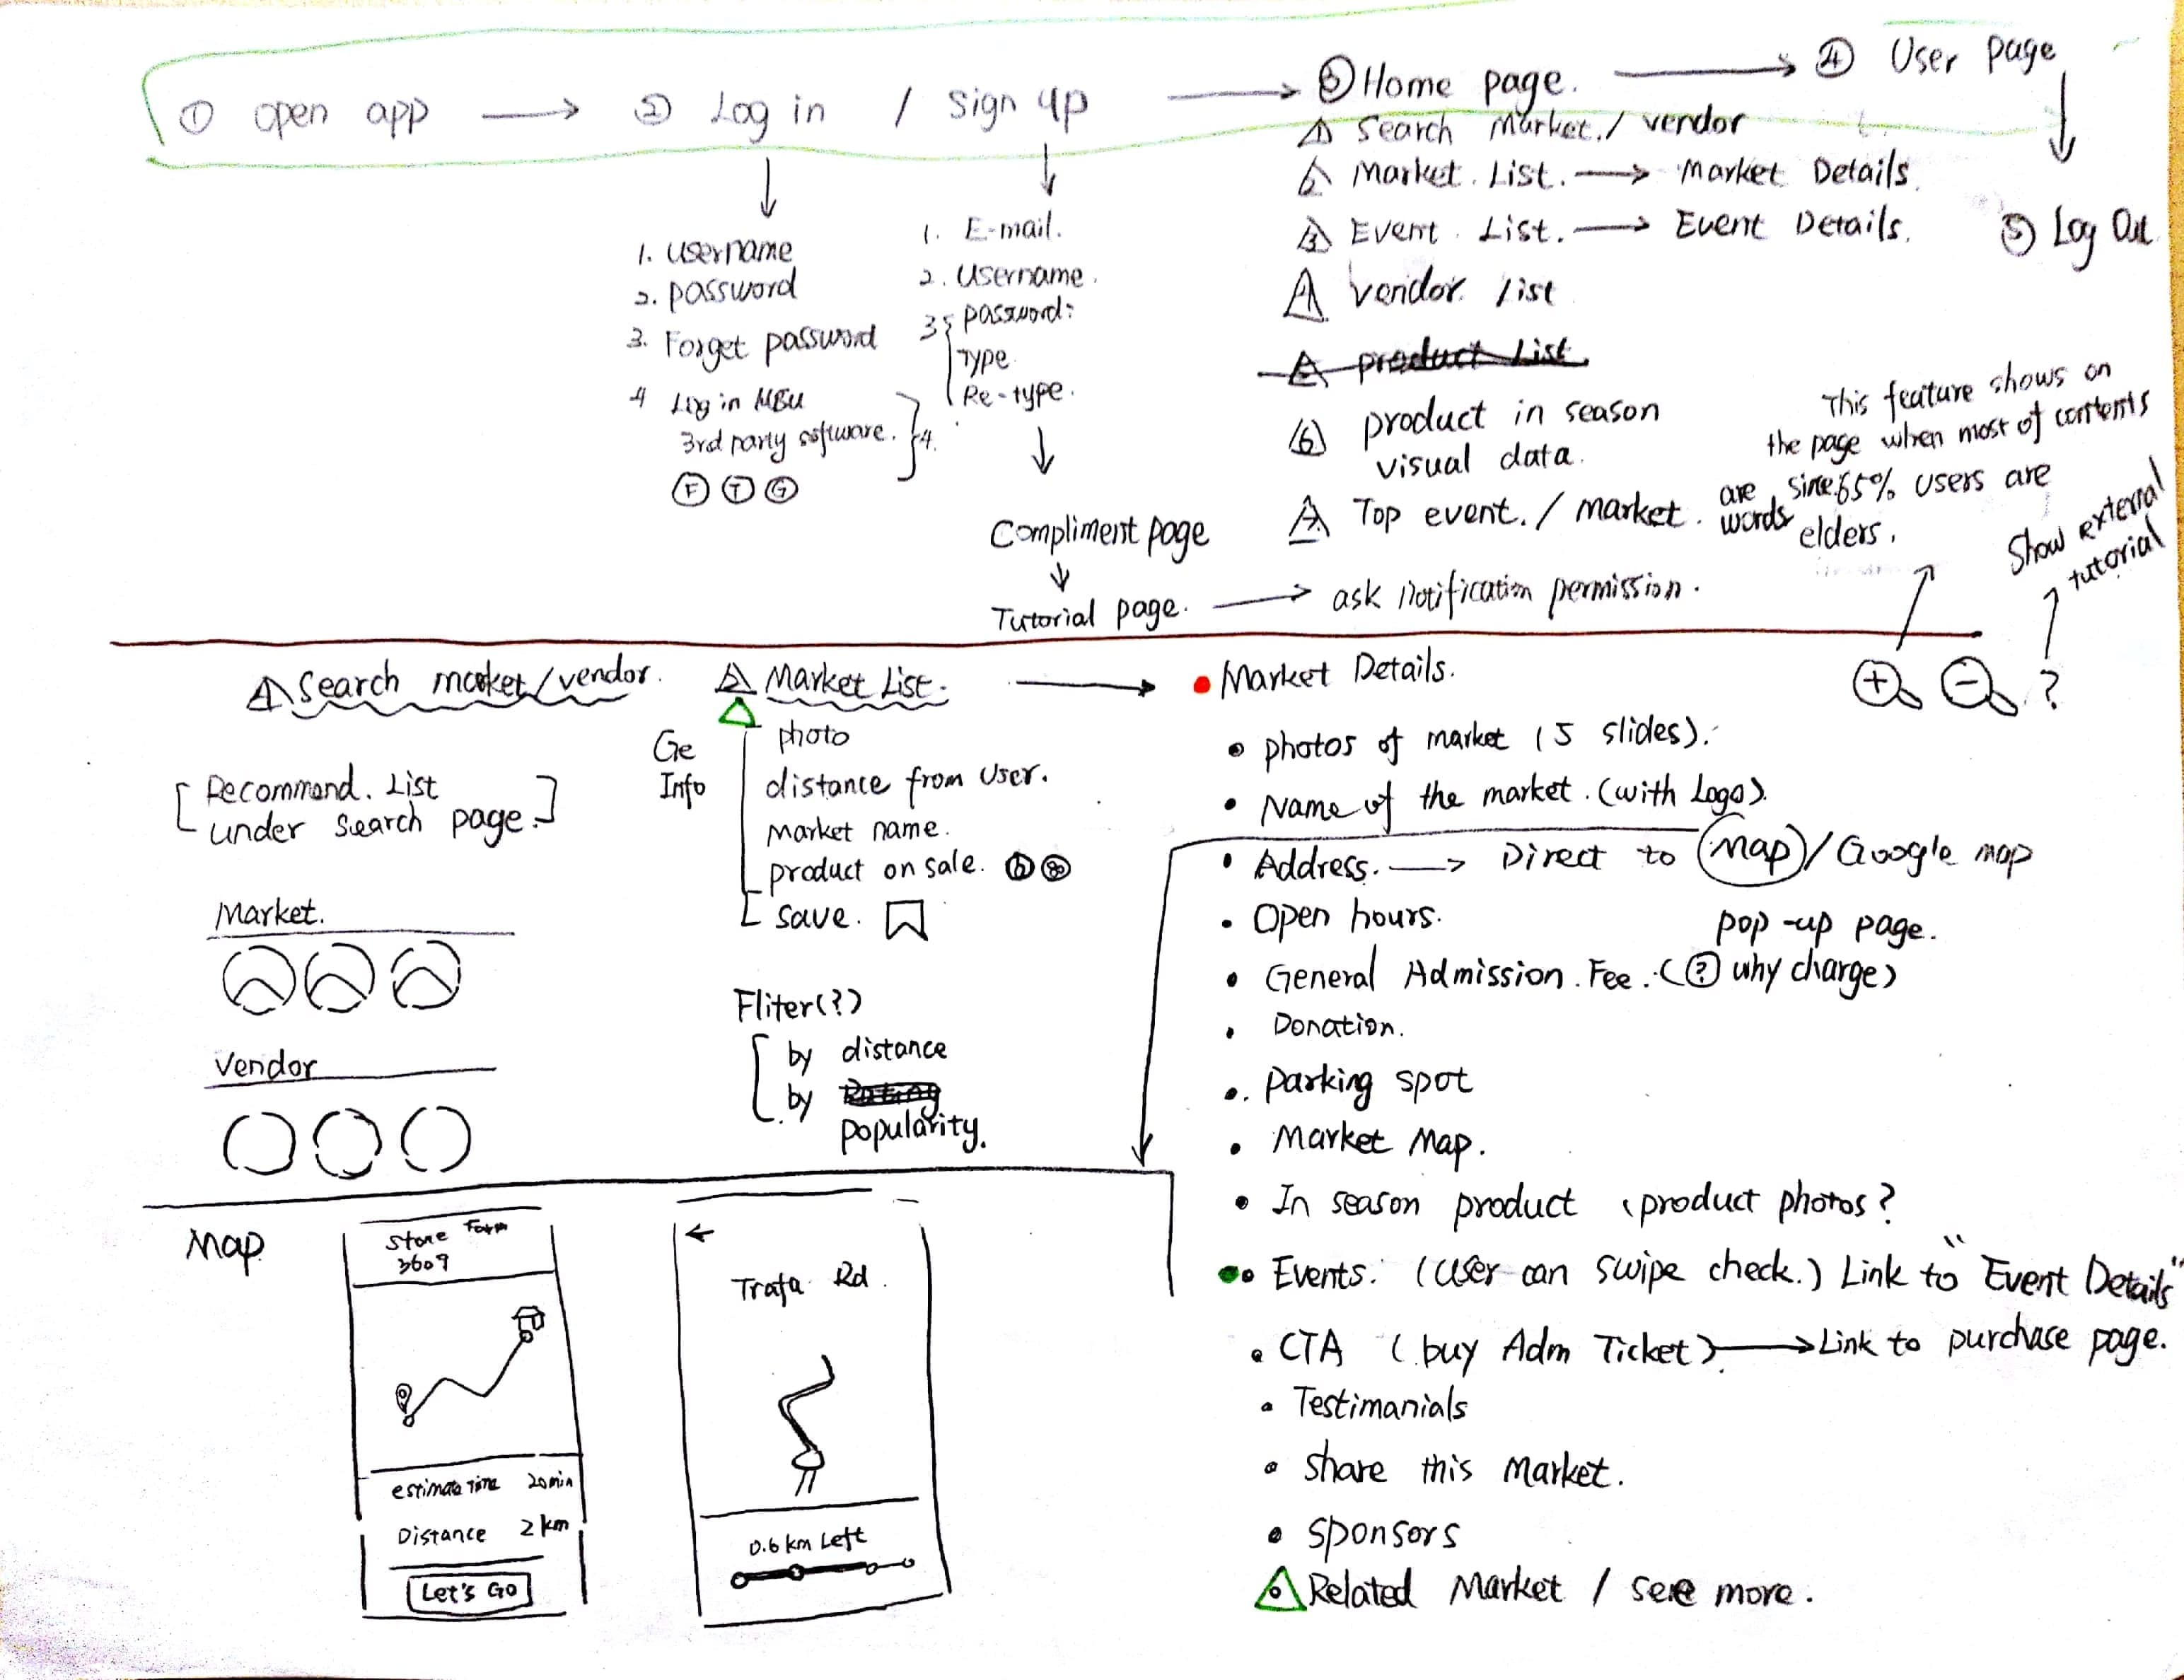 ① open app → ② Log in / Sign up → ③ Home page. → ④ User page
1 Search Market. / vendor
2 Market List. → Market Details.
3 Event List. → Event Details.
4 vendor list
product List
6 product in season
visual data.
7 Top event. / market.
⑤ Log Out
1. Username
2. password
3. Forget password
4 Log in
3rd party software. } 4.
F T G
1. E-mail.
2. Username.
3 password:
Type
Re-type.
Compliment page
Tutorial page. → ask notification permission.
This feature shows on
the page when most of contents
are words, since 65% users are
elders.
Show external
tutorial
+ - ?
1 Search market/vendor.
[Recommend. List
under search page.]
Market.
Vendor
2 Market List. → Market Details.
Ge
Info
photo
distance from User.
Market name.
product on sale.
save.
Fliter(?)
by distance
by
popularity.
photos of market (5 slides).
Name of the market. (with Logo).
Address. → Direct to Map / Google map
pop-up page.
Open hours.
General Admission Fee. (? why charge)
Donation.
parking spot
Market Map.
In season product (product photos?
Events. (User can swipe check.) Link to "Event Details"
CTA (buy Adm Ticket) → Link to purchase page.
Testimanials
share this Market.
sponsors
Related Market / see more.
Map
Stone Farm
3609
estimate Time 20min
Distance 2 km
Let's Go
←
Trafa Rd.
0.6 km Left